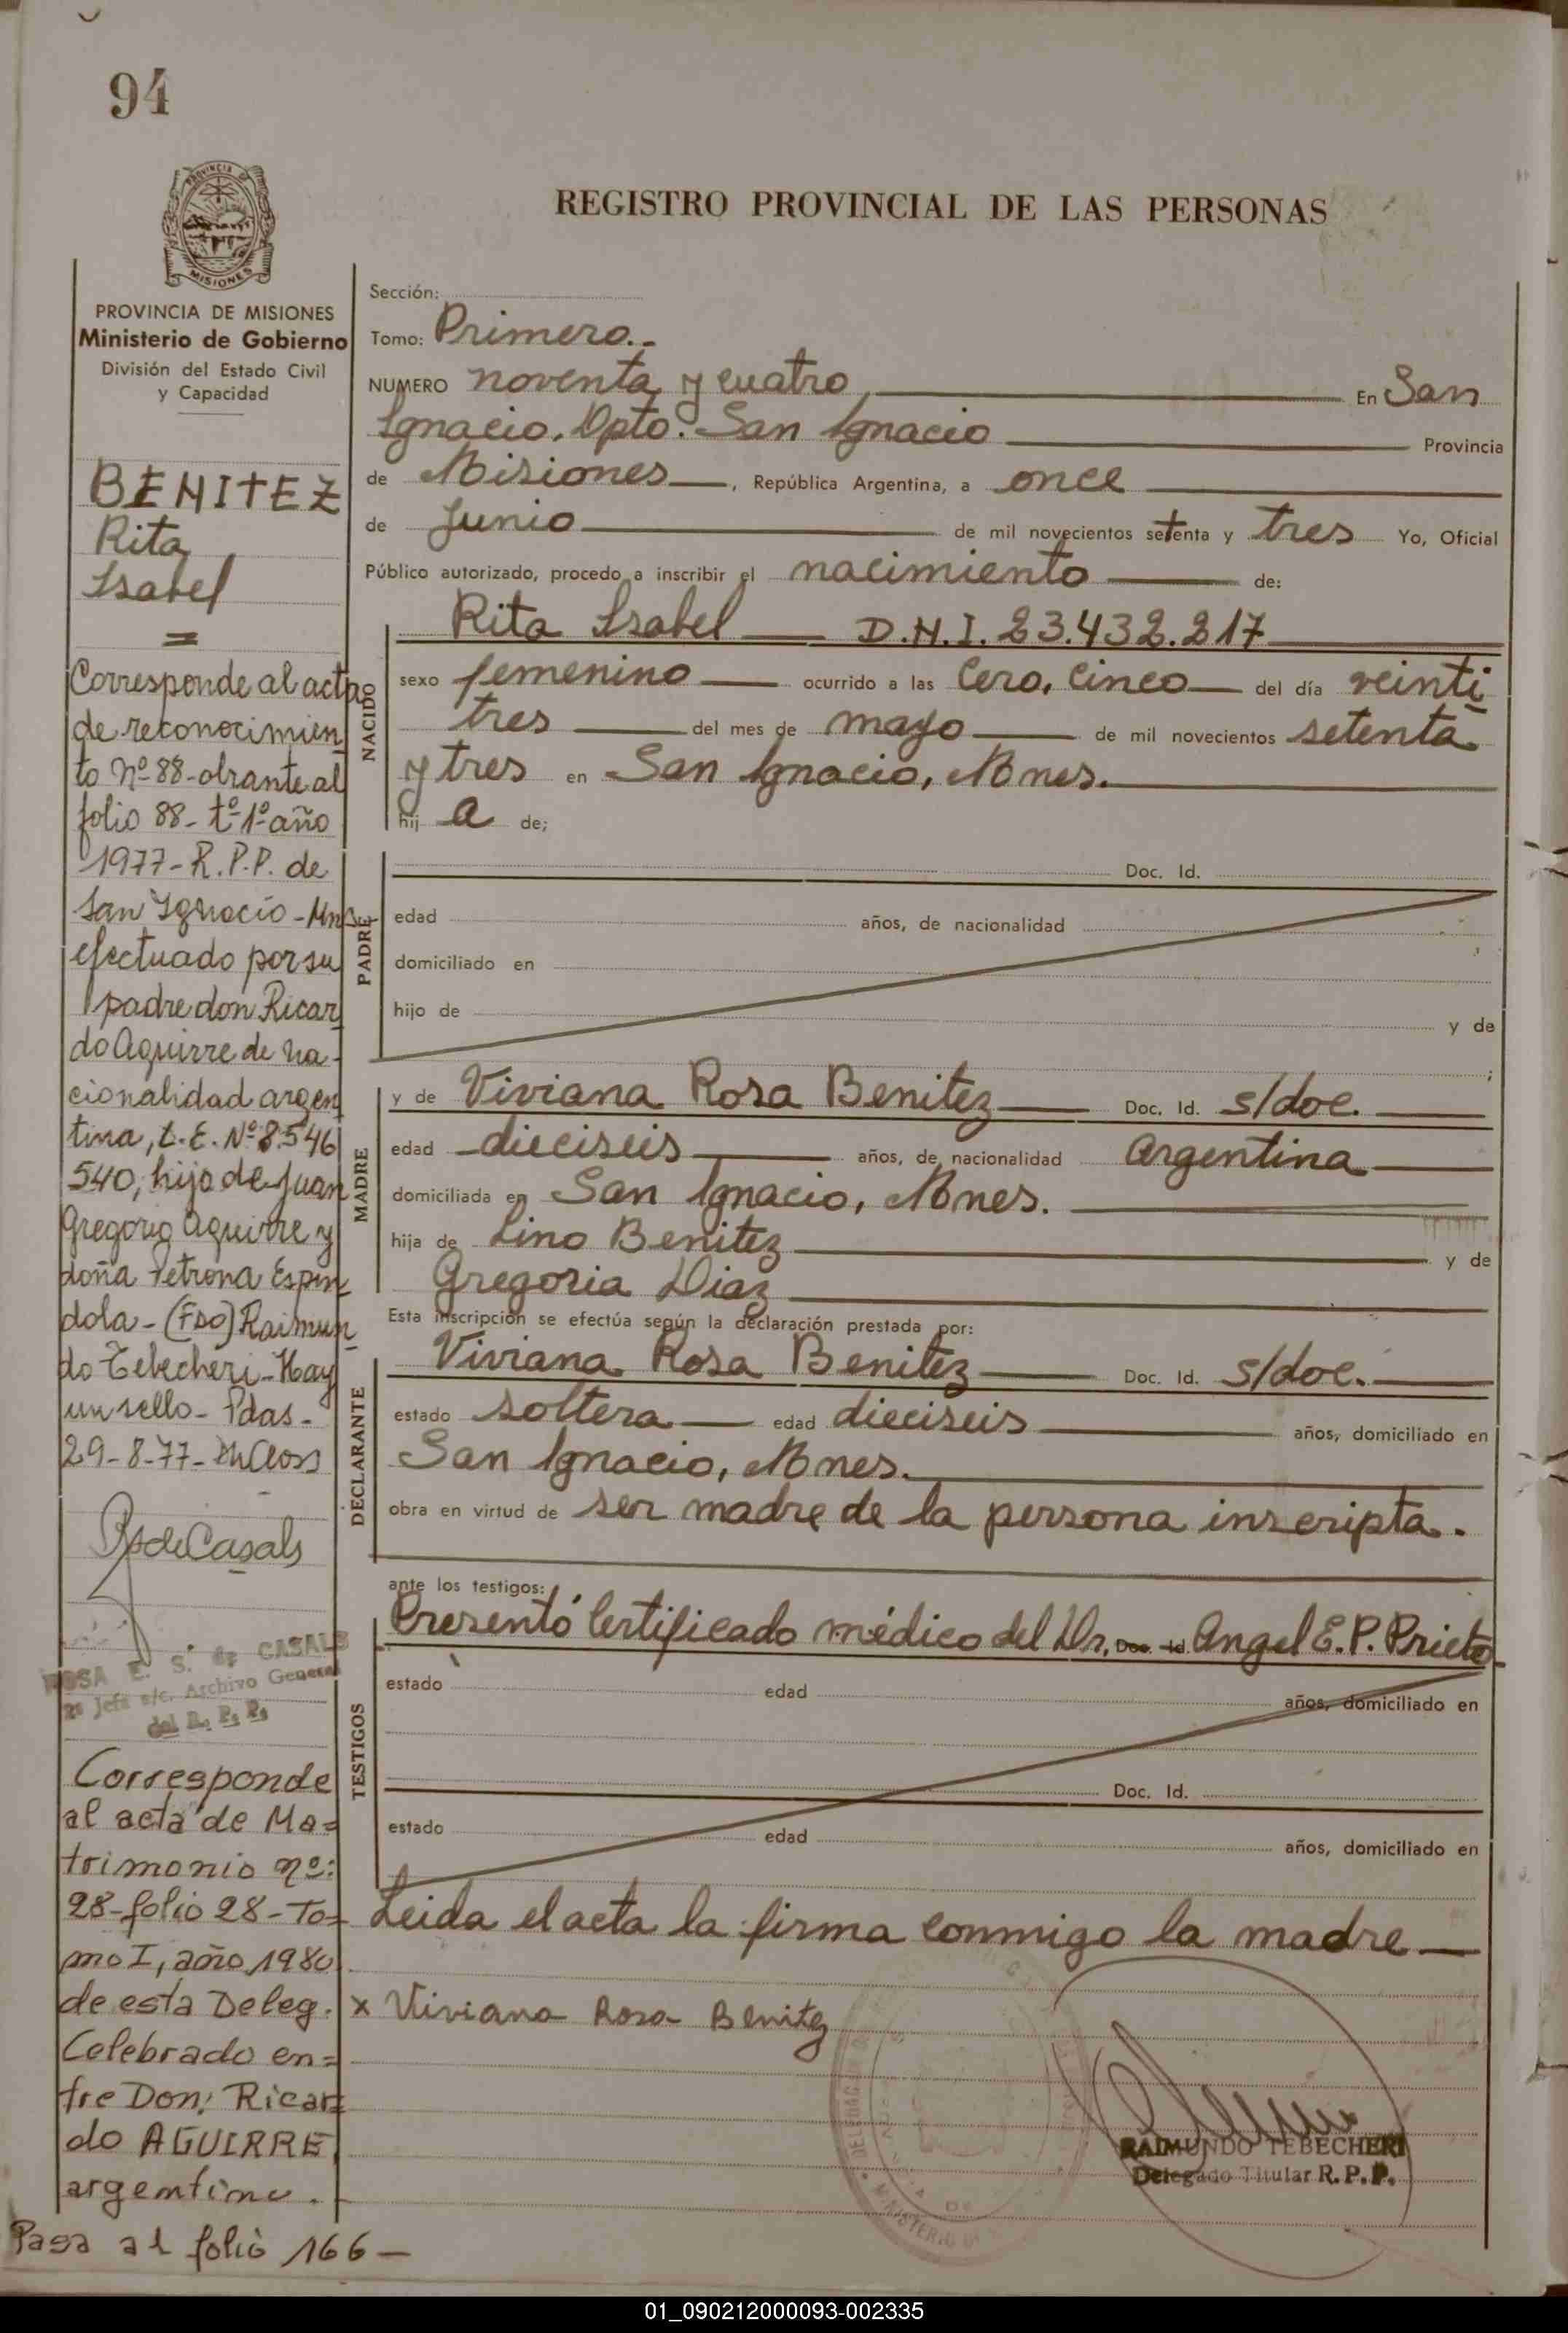 94
PROVINCIA DE
MISIONES
REGISTRO PROVINCIAL DE LAS PERSONAS
PROVINCIA DE MISIONES
Ministerio de Gobierno
División del Estado Civil
y Capacidad
BENITEZ
Rita
Isabel
=
Corresponde al acta
de reconocimien
to Nº 88- obrante al
folio 88- tº 1º año
1977- R.P.P. de
San Ignacio - Mns
efectuado por su
padre don Ricar
do Aguirre de na-
cionalidad argen
tina, L.E. Nº 8.546
540, hijo de Juan
Gregorio Aguirre y
doña Petrona Espin
dola - (FDO) Raimun
do Tebecheri - Hay
un sello - Pdas -
29-8-77-
RsdeCasals
ROSA E. S. de CASALS
2º Jefe a/c. Archivo General
del R. P. P.
Corresponde
al acta de Ma=
trimonio nº:
28-folio 28-To=
mo I, año 1980
de esta Deleg.
Celebrado en=
tre Don: Ricar=
do AGUIRRE,
argentino.
Pasa al folio 166 —
Sección:
Tomo: Primero.-
NUMERO noventa y cuatro En San
Ignacio, Dpto. San Ignacio Provincia
de Misiones, República Argentina, a once
de Junio de mil novecientos setenta y tres Yo, Oficial
Público autorizado, procedo a inscribir el nacimiento de:
NACIDO
Rita Isabel D.N.I. 23.432.217
sexo femenino ocurrido a las Cero, Cinco del día veinti
tres del mes de mayo de mil novecientos setenta
y tres en San Ignacio, Mnes.
hij a de;
PADRE
Doc. Id.
edad años, de nacionalidad
domiciliado en
hijo de y de
;
MADRE
y de Viviana Rosa Benitez Doc. Id. s/doc.
edad dieciseis años, de nacionalidad Argentina
domiciliada en San Ignacio, Mnes.
hija de Lino Benitez y de
Gregoria Diaz
Esta inscripción se efectúa según la declaración prestada por:
DECLARANTE
Viviana Rosa Benitez Doc. Id. s/doc.
estado soltera edad dieciseis años, domiciliado en
San Ignacio, Mnes.
obra en virtud de ser madre de la persona inscripta.
ante los testigos:
TESTIGOS
Presentó Certificado médico del Dr. Doc. Id. Angel E.P. Prieto
estado edad años, domiciliado en
Doc. Id.
estado edad años, domiciliado en
Leida el acta la firma conmigo la madre —
x Viviana Rosa Benitez
RAIMUNDO TEBECHERI
Delegado Titular R. P. P.
01_090212000093-002335